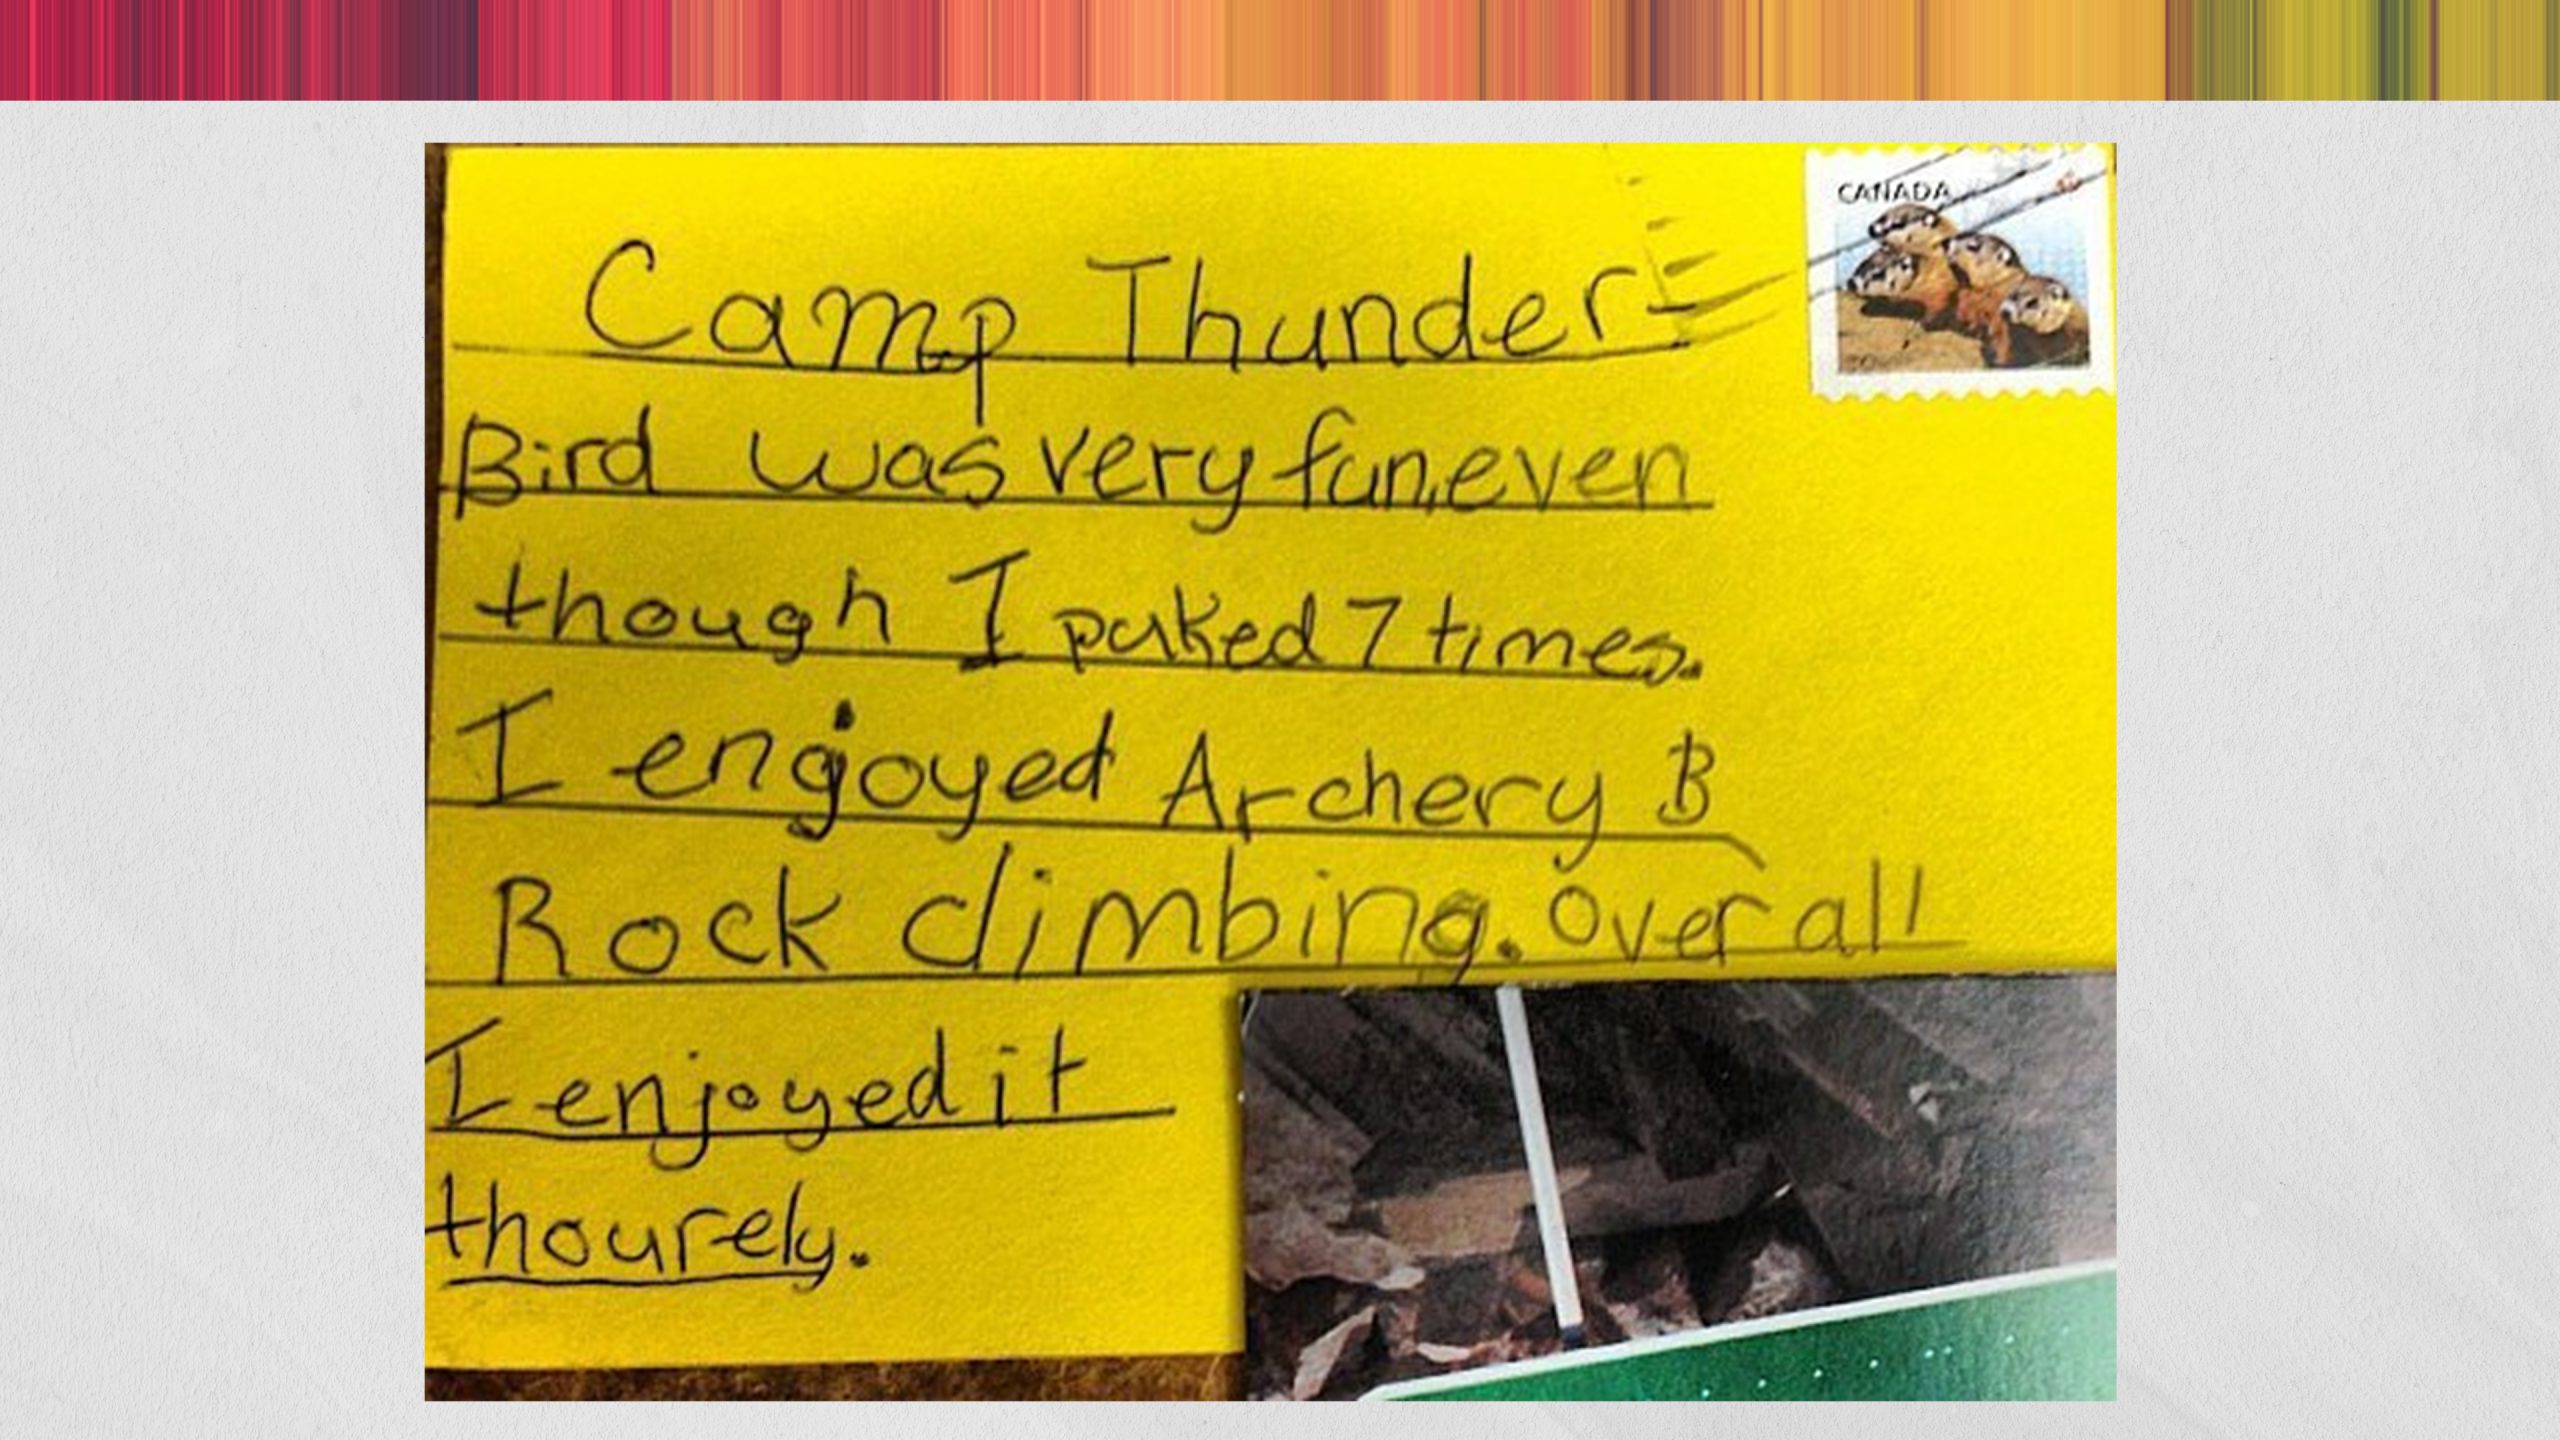 CANADA
Camp Thunder-
Bird was very fun, even
though I puked 7 times.
I engoyed Archery B
Rock climbing. Over all
I enjoyed it
thourely.